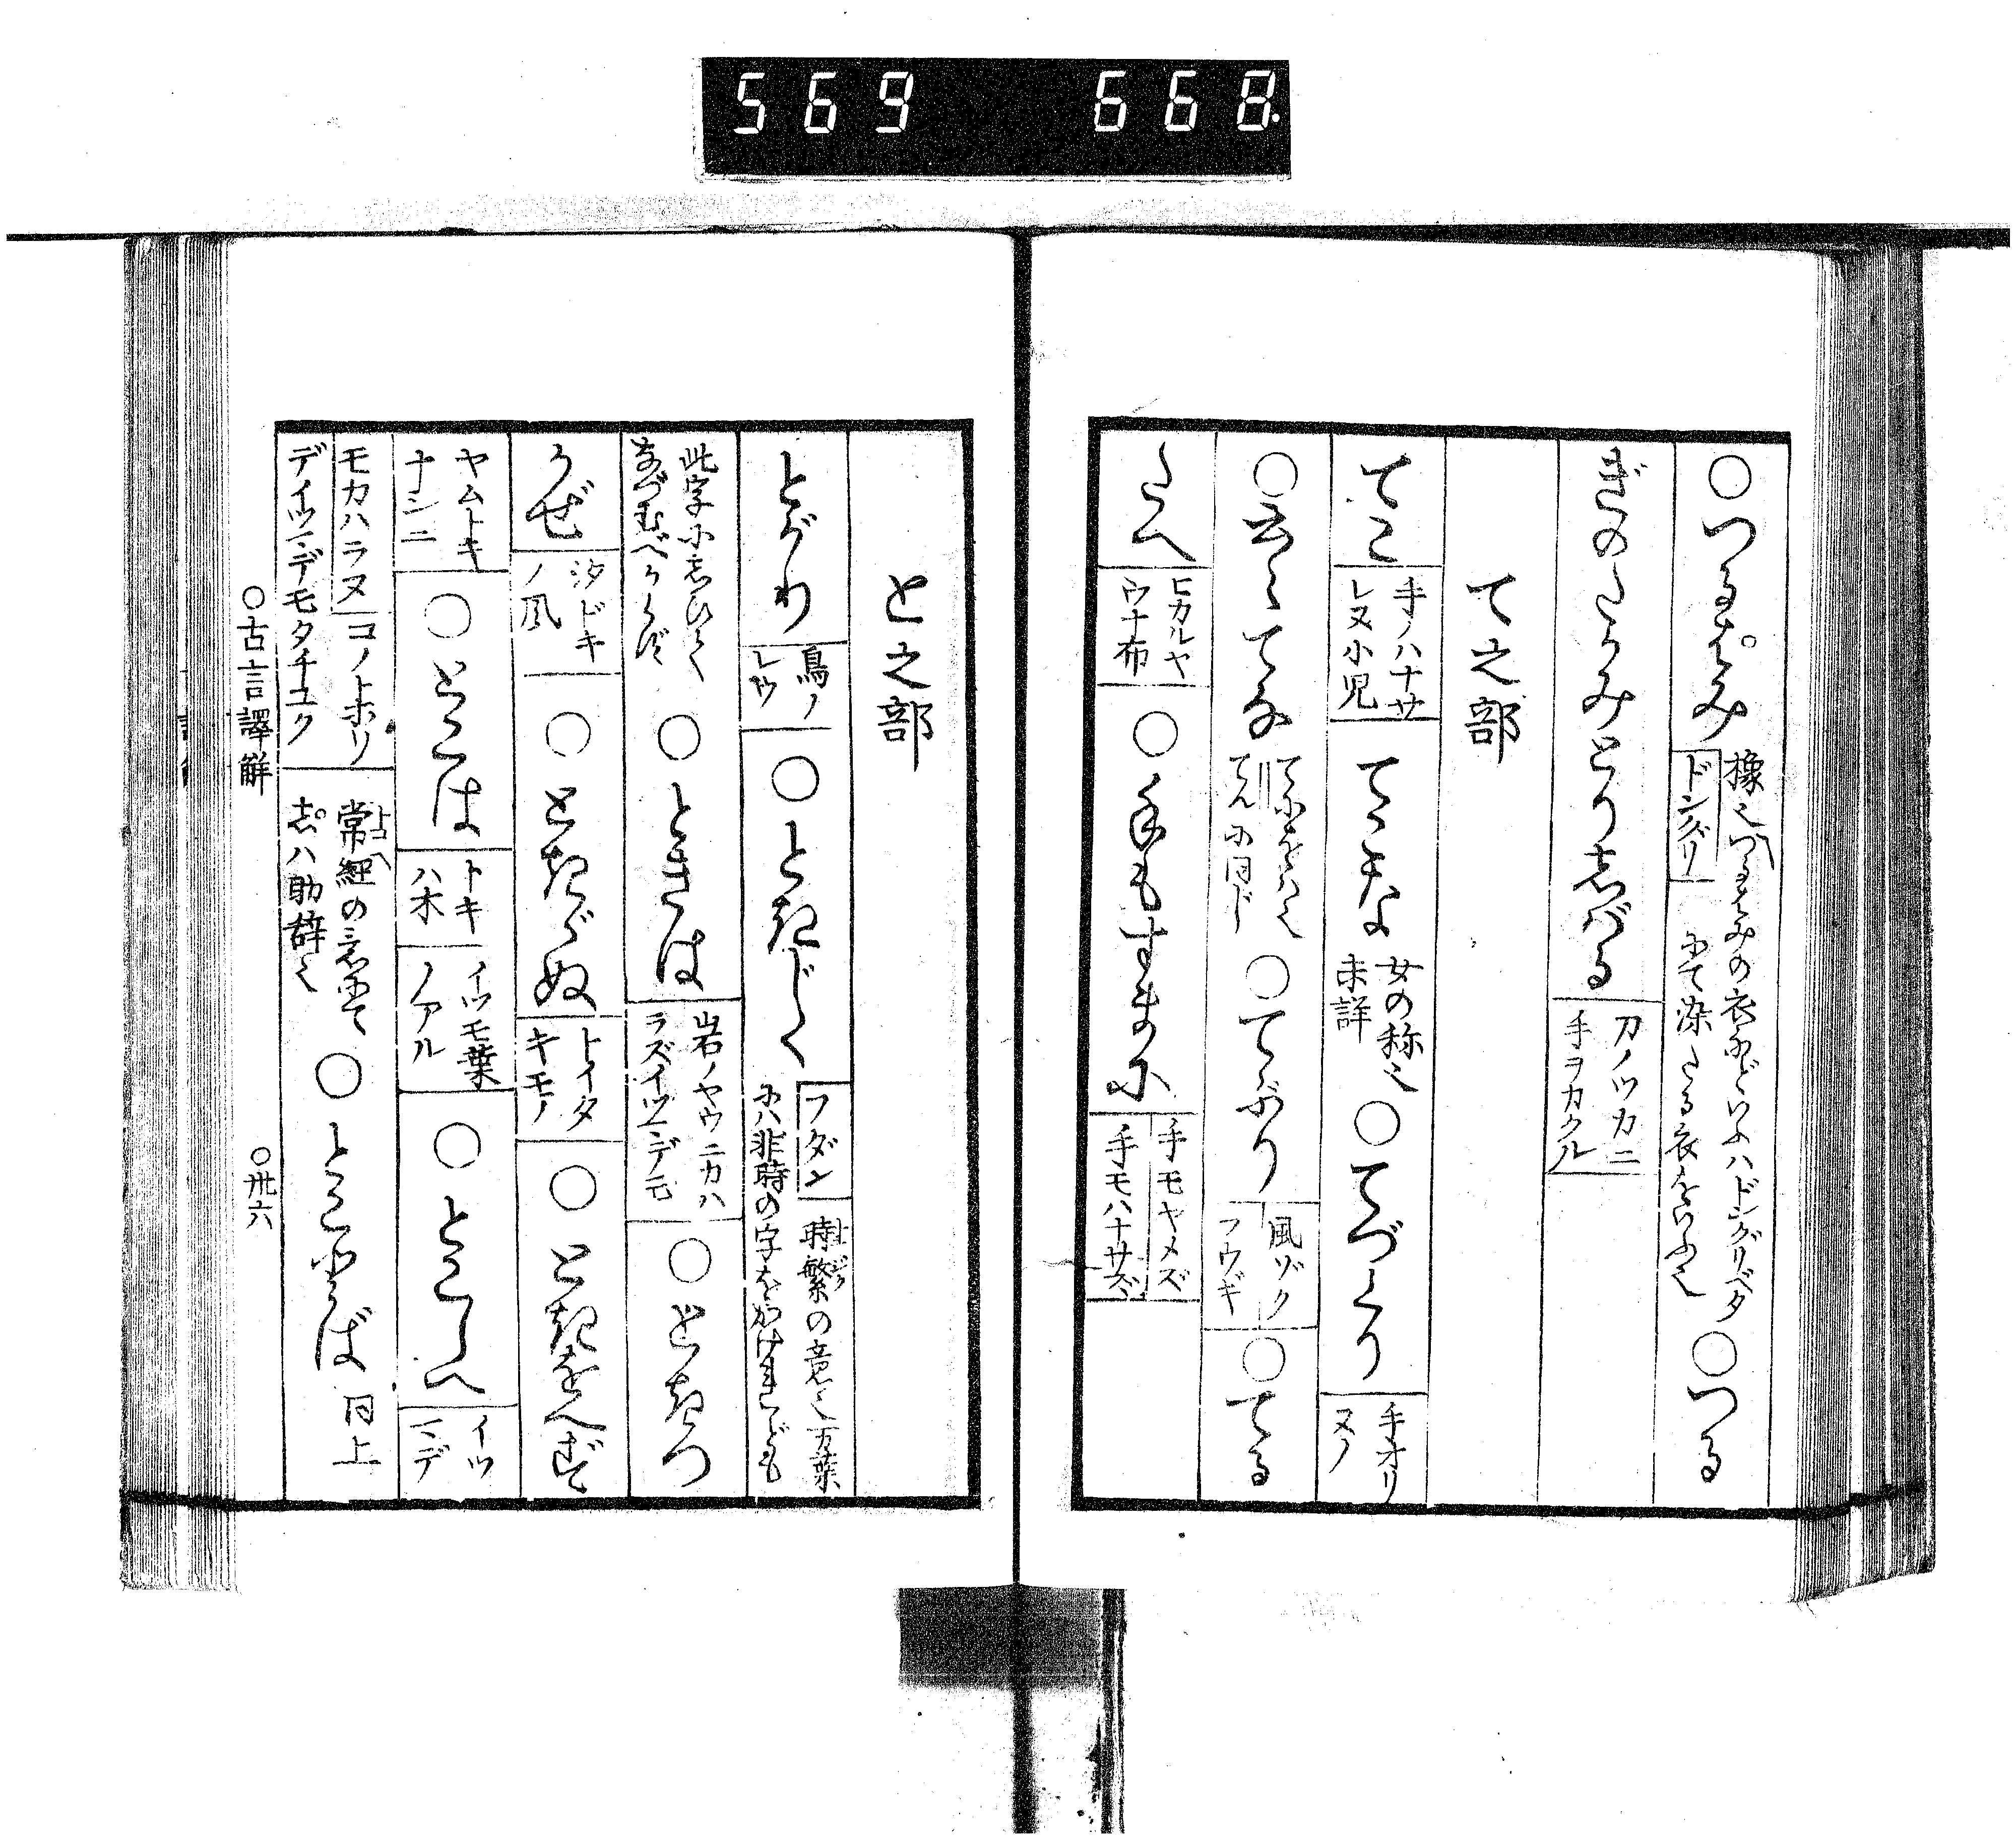 569 668
○つるばみ 橡也つるばみの衣などいふハドングリベタ ドングリ にて染たる衣をいふ也 ○つる
ぎのたかみとりしばる 刀ノツカニ手ヲカクル
て之部
てこ 手ノハナサレヌ小児 てこな 女の称也未詳 ○てづくり 手オリヌノ
てん に同じ ○てぶり 風ゾクフウギ ○てる
たへ ヒカルヤウナ布 ○手もすまに 手モヤメズ手モハナサズ
と之部
とがり 鳥ノレウ ○ときじく フダン 時繁の意也万葉にハ非時の字をかけれども
此字にしひてなづむべからず ○ときは 岩ノヤウニカハラズイツマデモ ○ときつ
かぜ 汐ドキノ風 ○ときゞぬ トイタキモノ ○ときをへず
ヤムトキナシニ ○とこは トキハ木 イツモ葉ノアル ○とこしへ イツマデ
モカハラヌ コノトホリデイツマデモタチユク 常経の意にてしハ助辞也 ○とこ 同上
○古言譯解 ○卅六